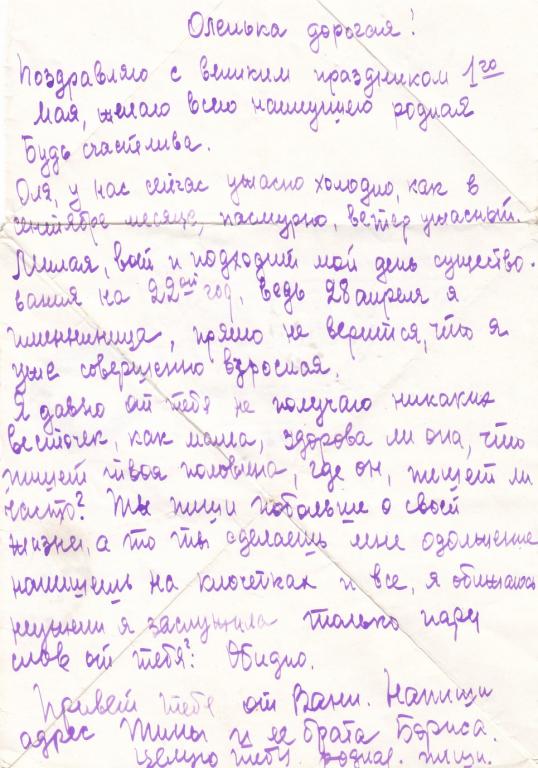 Оленька дорогая!
Поздравляю с великим праздником 1го
Мая, желаю всего наилучшего родная
Будь счастлива.
Оля, у нас сейчас ужасно холодно, как в
сентябре месяце, пасмурно, ветер ужасный.
Милая, вот и подходит мой день существо-
вания на 22ой год, ведь 28 апреля я
именинница, прямо не верится, что я
уже совершенно взрослая.
Я давно от тебя не получаю никаких
весточек, как мама, здорова ли она, что
пишет твоя половина, где он, пишет ли
часто? Ты пиши побольше о своей
жизни, а то ты сделаешь мне одолжение
напишешь на клочетках и все, я обижаюсь
неужели я заслужила только пару
слов от тебя? Обидно.
Привет тебе от Вани. Напиши
адрес Тимы и ее брата Бориса.
Целую тебя. родная. пиши.